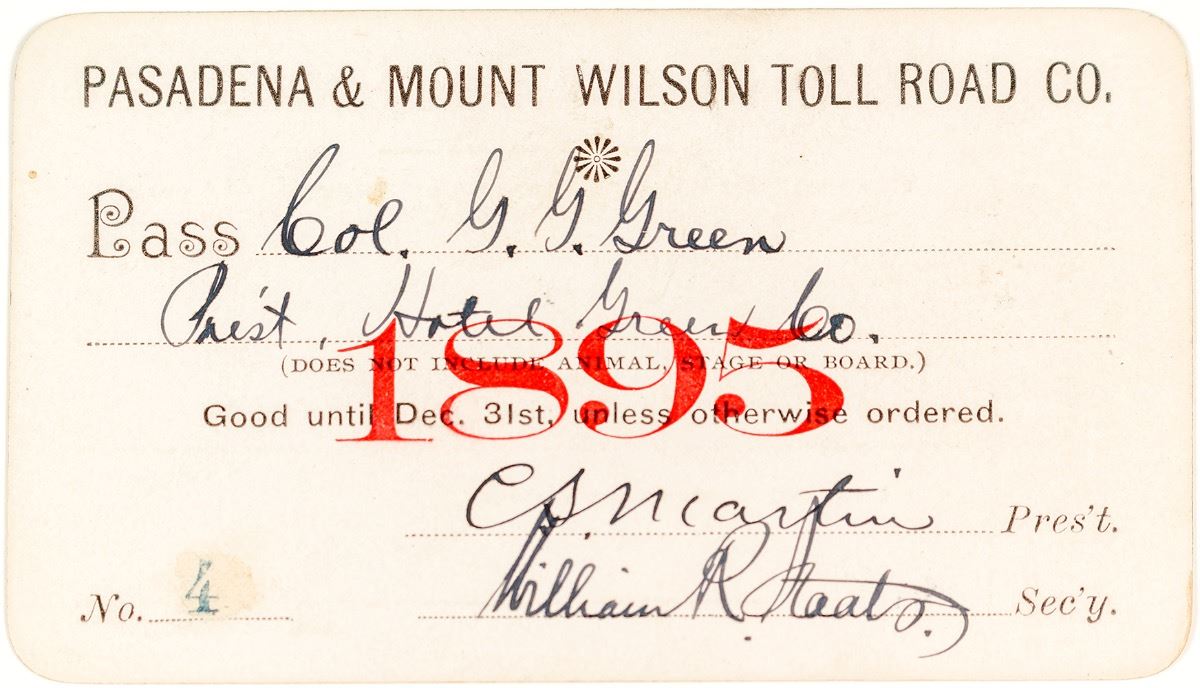 PASADENA & MOUNT WILSON TOLL ROAD CO.
Pass Col. G. G. Green
Pres't, Hotel Green Co.
(DOES NOT INCLUDE ANIMAL, STAGE OR BOARD.)
1895
Good until Dec. 31st, unless otherwise ordered.
C S Martin Pres't.
William R Staats. Sec'y.
No. 4